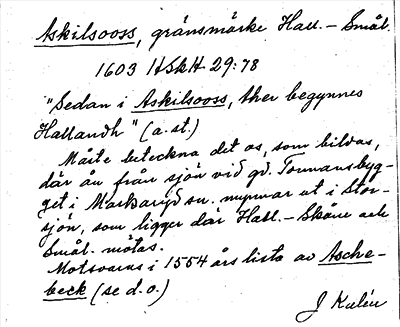 Askilsooss, gränsmärke Hall. – Smål.
1603 HSkH 29:78
"Sedan i Askilsooss, ther begynnes
Hallandh" (a.st.)
Måste beteckna det os, som bildas,
där ån från sjön vid gd. Tormansbyg-
get i Markaryd sn. mynnar ut i Stor-
sjön, som ligger där Hall. – Skåne och
Smål. mötas.
Motsvaras i 1554 års lista av Asche-
beck (se d.o.)
J Kalén